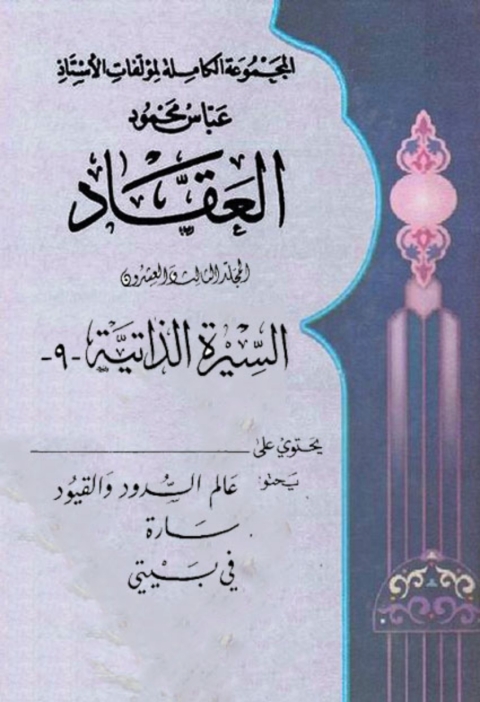 المجموعة الكاملة لمؤلفات الأستاذ
عباس محمود
العقاد
المجلد الثالث والعشرون
السيرة الذاتية -٩-
يحتوي على
يحتوي عالم السدود والقيود
سارة
في بيتي